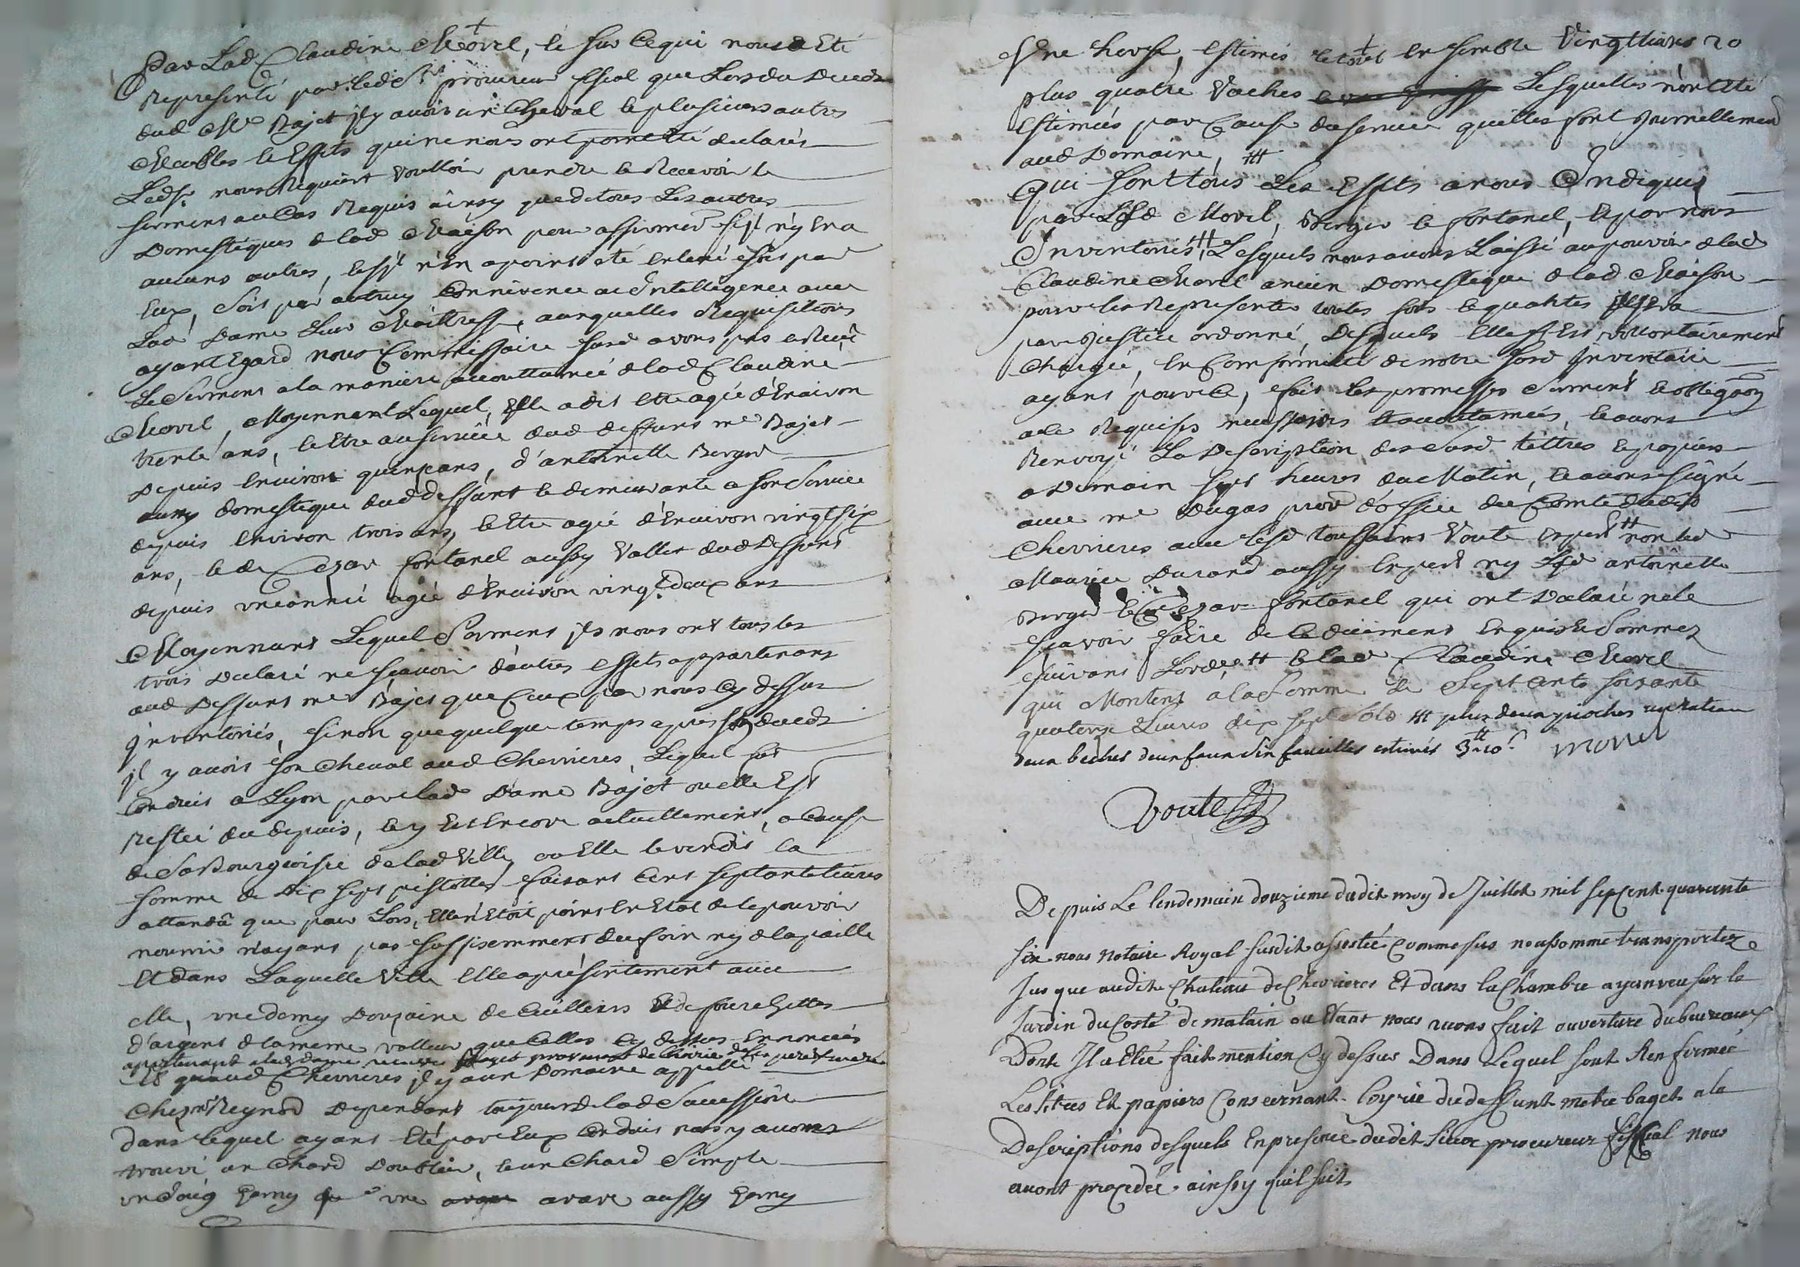 Par Lad Claudine Morel, et sur ce qui nous a Eté
Representé par ledit Sr procureur fiscal que Lors du Deceds
dud Me Bajet il y avoit un Cheval et plusieurs autres
Meubles et Effets qui ne nous ont point Eté declarés
Led Sr nous Requiert voulloir prendre et Recevoir le
serment au Cas Requis ainsy que de tous Les autres
Domestiques de lad Maison pour affirmer s'il n'y En a
aucuns autres, et s'il n'En a point eté enlevé soit par
Eux, soit par autruy Connivence et d'intelligence avec
Lad Dame Leur Maitresse, auxquelles Requisitions
ayant Egard nous Commissaire susd avons pris et Reçu
Le Serment a la maniere accoutumée de lad Claudine
Morel, Moyennant Lequel, Elle a dit etre agée d'Environ
trente ans, et Etre au service dud deffunt me Bajet
Depuis Environ quinze ans, d'antoinette Berger
aussy domestique dud deffunt et demeurante a son Service
depuis Environ trois ans, et Etre agée d'Environ vingt six
ans, et de Cezar fontanel aussy Vallet dud Deffunt
depuis une année agé d'Environ vingt deux ans
Moyennant Lequel Serment ils nous ont tous les
trois Declaré ne sçavoir d'autres effets appartenans
aud Deffunt me Bajet que Ceux par nous Cy dessus
Inventoriés, sinon que quelque temps apres son deceds
il y avoit son Cheval aud Chevrieres, Lequel fut
Conduit a Lyon par lad Dame Bajet ou elle Est
Restée du depuis, et y Est Encore actuellement, a Cause
de sa Bourgeoisie de lad Ville, ou Elle le vendit la
somme de Dix sept pistolles faisant Cent septante livres
attendû que pour Lors, Elle n'Etoit point En Etat de le pouvoir
nourrir n'ayant pas suffisemment du foin ny de la paille
Et dans Laquelle Ville Elle a présentement avec
elle, une demy Douzaine de Cuilliers Et de fourchettes
d'argent de la meme valleur que Celles Cy dessus Enoncées
appartenant a lad dame provenant de
Et qu'aud Chevrieres il y a un Domaine appellé
Chez Reynod Dependant toujours de lad Succession
dans Lequel ayant Eté par Eux Conduit nous y avons
trouvé un Chard Doublier, et un Chard Simple
un Joug garny une araire aussy garny
Une herse, Estimés le tout En semble Vingt livres 20
plus quatre Vaches Lesquelles n'ont Eté
Estimées par Cause du service qu'elles font Journellement
aud Domaine,
Qui sont tous Les Effets a nous Indiqués
par Lesd Morel, Berger et fontanel, et par nous
Inventoriés, Lesquels nous avons Laissé au pouvoir de lad
Claudine Morel ancien Domestique de lad Maison
pour les Representer toutes fois et quantes il sera
par Justice ordonné, Desquels Elle s'Est vollontairement
Chargée, En Conformité de notre susd Inventaire
ayant pour ce, fait Les promesses Serment et obligaon
a ce Requises necessaires et accoutumées, et avons
Renvoyé La Description des susd tittres et papiers
a Demain sept heures du Matin, et avons signé
avec me Dugas procr d'office du Comté dud
Chevrieres avec led toussaint Voute Expert non led
Maurice Durand aussy Expert ny Lad antoinette
Berger et Cezar fontanel qui ont Declaré ne le
sçavoir faire de Ce düement Enquis Et Sommés
suivant Lorde et lad Claudine Morel
qui Montent a la somme de Sept Cents soixante
quatorze Livres dix sept Sols plus deux pioches un rateau
deux beches deux faux six faucilles estimés 3tt 10s morel
Voute
Depuis Le lendemain douzieme dudit moy de Juillet mil sepcent quarante
six nous Notaire Royal susdit assistée Comme sus nous somme transportez
Jusque audit Chateau de Chevrieres Et dans la Chambre ayant veu sur le
Jardin du Costé de matain ou Etant nous avons fait ouverture du bureaux
Dont Il a Eté fait mention Cy dessus Dans Lequel sont Renfermée
Les titres Et papiers Consernant Loyrie du deffunt metre baget a la
Descriptions desquels En presence dudit Sieur procureur fiscal nous
avont procedée ainsy quil suit